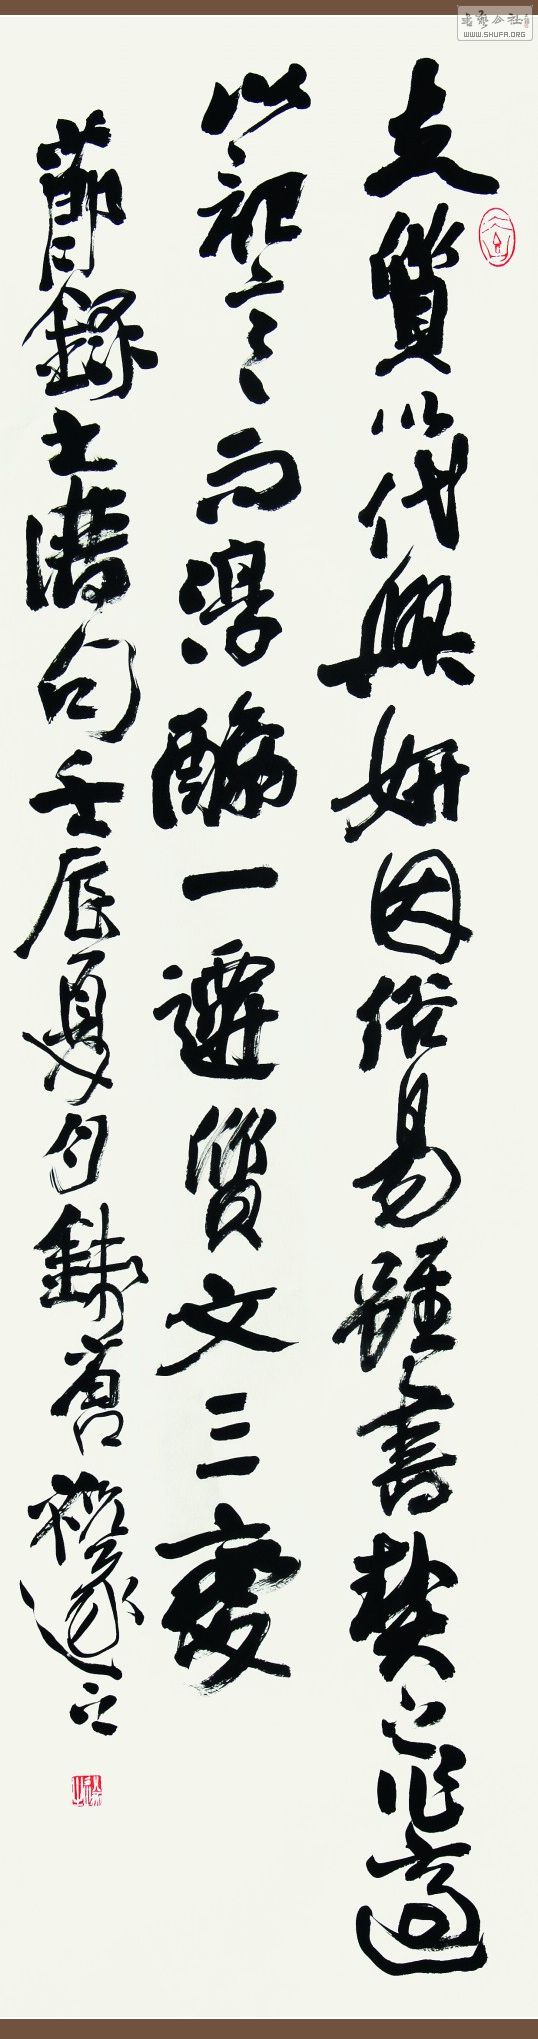 夫質以代興妍因俗易雖書契之作適
以記言而淳醨一遷質文三變
節錄書譜句壬辰夏月錢
書艺公社
WWW.SHUFA.ORG